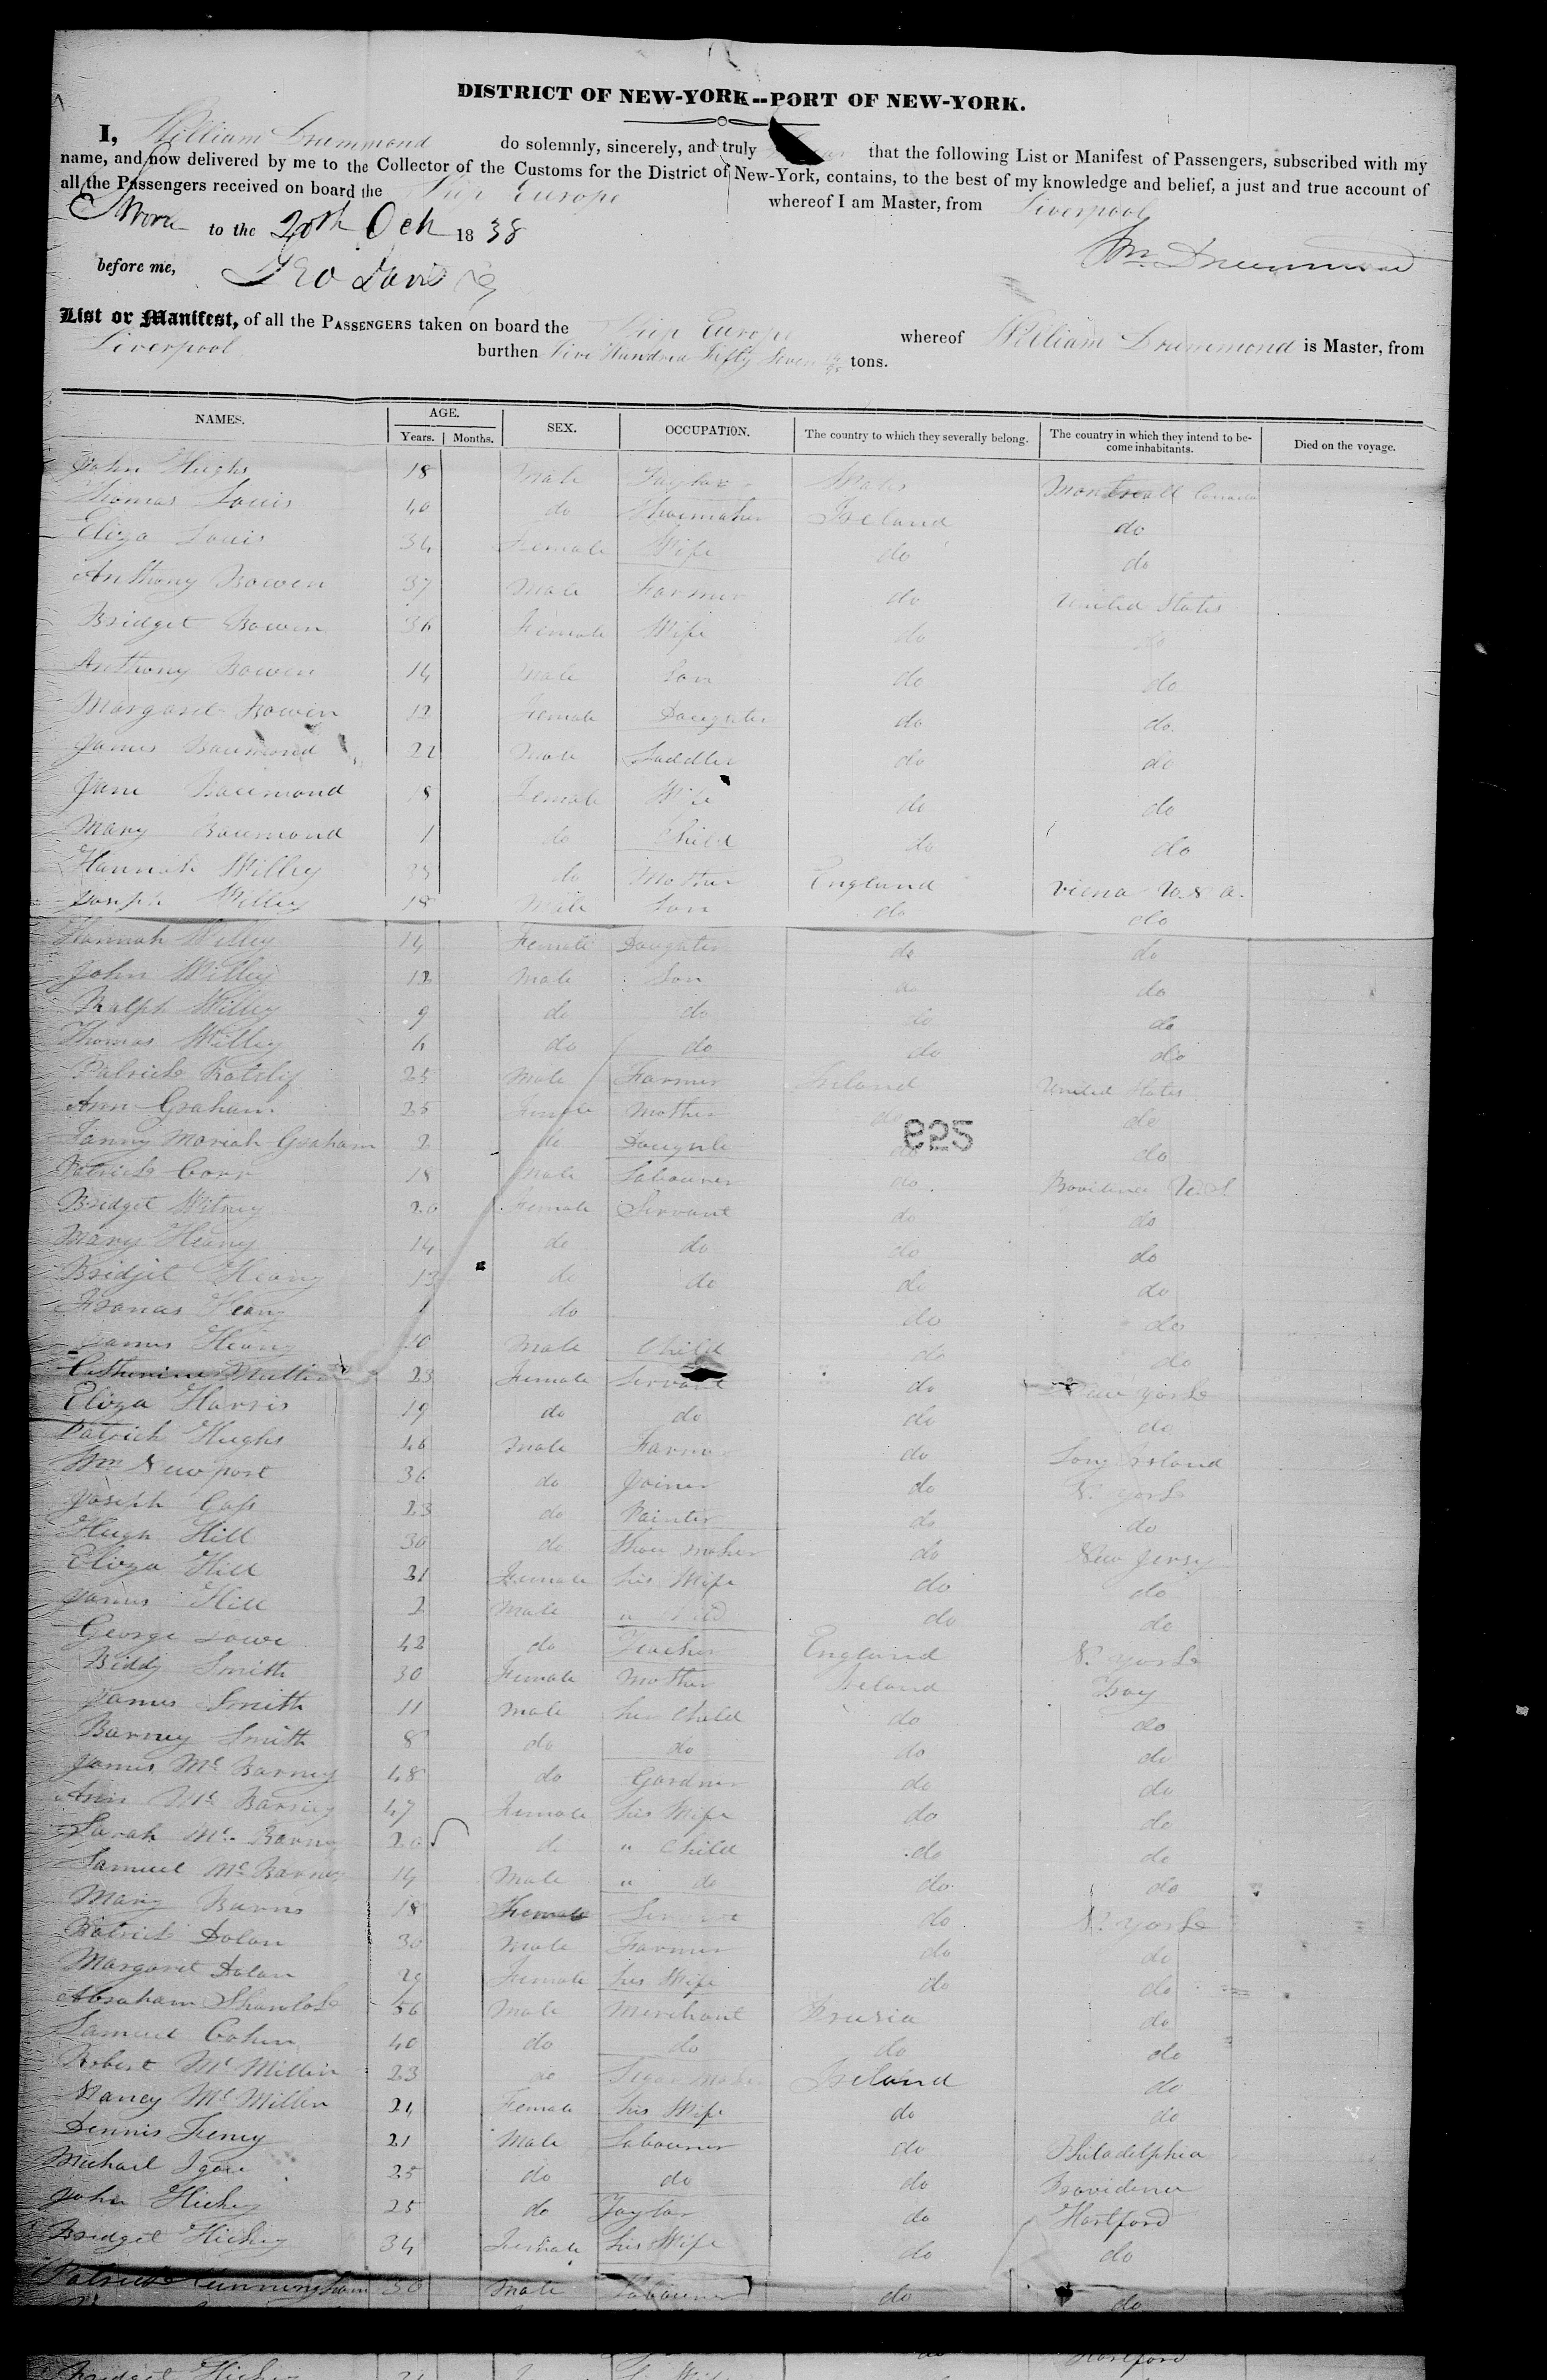 DISTRICT OF NEW-YORK--PORT OF NEW-YORK.
I, William Drummond do solemnly, sincerely, and truly that the following List or Manifest of Passengers, subscribed with my
name, and now delivered by me to the Collector of the Customs for the District of New-York, contains, to the best of my knowledge and belief, a just and true account of
all the Passengers received on board the Ship Europe whereof I am Master, from Liverpool
Sworn to the 20th Oct 1838
Wm Drummond
before me, Geo Davis
List or Manifest, of all the PASSENGERS taken on board the Ship Europe whereof William Drummond is Master, from
Liverpool burthen Five Hundred Fifty Seven tons.
NAMES. AGE. Years. Months. SEX. OCCUPATION. The country to which they severally belong. The country in which they intend to become inhabitants. Died on the voyage.
John Hughs 18 Male Taylor Wales Montreall Canada
Thomas Louis 40 do Shoemaker Ireland do
Eliza Louis 34 Female Wife do do
Anthony Bowen 37 Male Farmer do United States
Bridget Bowen 36 Female Wife do do
Anthony Bowen 14 Male Son do do
Margaret Bowen 12 Female Daughter do do
James 21 Male Saddler do do
Jane 18 Female Wife do do
Mary 1 do Child do do
Hannah Willey 35 do Mother England Viena U.S.A.
Joseph Willey 18 Male Son do do
Hannah Willey 14 Female Daughter do do
John Willey 12 Male Son do do
Ralph Willey 9 do do do do
Thomas Willey 6 do do do do
Patrick 25 Male Farmer Ireland United States
Ann Graham 25 Female Mother do do
Fanny Moriah Graham 2 do do do
825
Patrick Corr 18 Male Labourer do U.S.
Bridget Witney 20 Female Servant do do
Mary Heany 14 do do do do
Bridjit Heany 13 do do do do
Frances Heany 1 do do do
James Heany 10 Male Child do do
Catherine 23 Female Servant do New York
Eliza Harris 19 do do do do
Patrick Hughs 46 Male Farmer do Long Island
Wm Newport 36 do Joiner do N. York
Joseph Cass 23 do Painter do do
Hugh Hill 30 do Shoe maker do New Jersy
Eliza Hill 21 Female his Wife do do
James Hill 2 Male " Child do do
George Lowe 42 do Teacher England N. York
Biddy Smith 30 Female Mother Ireland Troy
James Smith 11 Male her Child do do
Barney Smith 8 do do do do
James Mc Barney 48 do Gardner do do
Ann Mc Barney 47 Female his Wife do do
Sarah Mc Barney 20 do " Child do do
Samuel Mc Barney 14 Male " do do do
Mary Barns 18 Female Servant do N. York
Patrick Dolan 30 Male Farmer do do
Margaret Dolan 29 Female his Wife do do
Abraham 56 Male Merchant Prusia do
Samuel Cohen 40 do do do do
Robert Mc Millin 23 do Segar Maker Ireland do
Nancy Mc Millen 21 Female his Wife do do
Dennis 21 Male Labourer do Philadelphia
Michael 25 do do do Providence
John Hickey 25 do Taylor do Hartford
Bridget Hickey 34 Female his Wife do do
Patrick Cunningham 30 Male Labourer do do